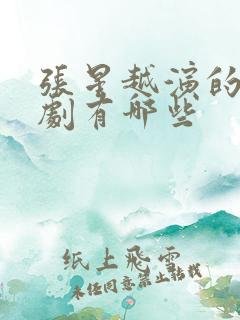 張星越演的
劇有哪些
纸上飛雲
未经同意禁止転载